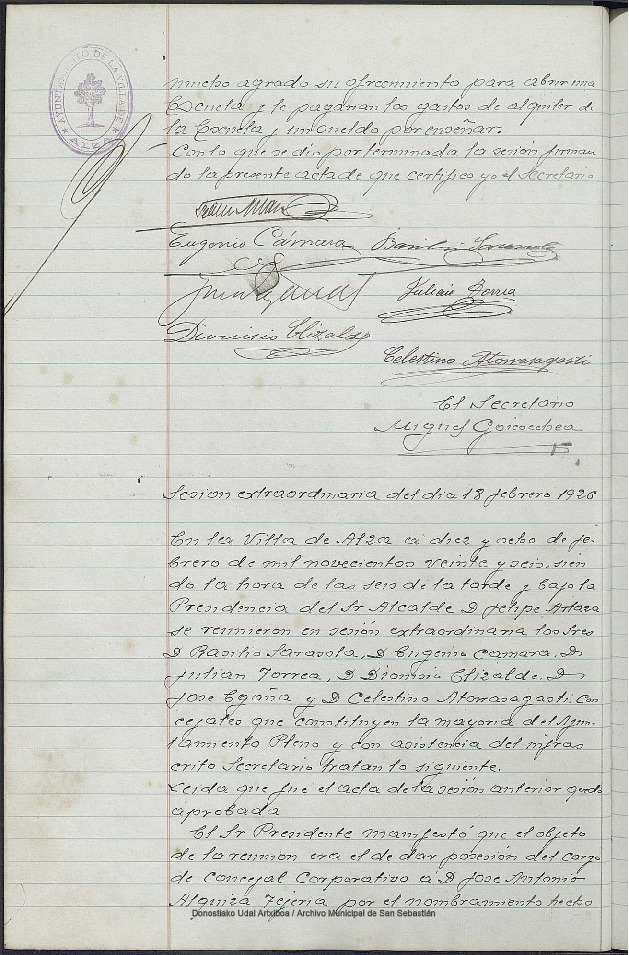 AYUNTAMIENTO DE LA VILLA DE
ALZA
mucho agrado su ofrecimiento para abrir una
Escuela y le pagarian los gastos de alquiler de
la Escuela y un sueldo por enseñar.
Con lo que se dio por terminada la sesión firman
do la presente acta de que certifico yo el Secretario
Eugenio Cámara
Julian Torrea
Dionisio Elizalde
Celestino Atorrasagasti
El Secretario
Miguel Goicoechea
Sesion extraordinaria del dia 18 febrero 1926
En la Villa de Alza a diez y ocho de fe-
brero de mil novecientos veinte y seis, sien
do la hora de las seis de la tarde y bajo la
Presidencia del Sr Alcalde D Felipe Artaza
se reunieron en sesión extraordinaria los Sres
D Basilio Sarasola, D Eugenio Camara, D.
Julian Torrea, D Dionisio Elizalde, D
Jose Egaña y D Celestino Atorrasagasti, Con
cejales que constituyen la mayoria del Ayun-
tamiento Pleno y con asistencia del infras
crito Secretario tratan lo siguiente.
Leida que fue el acta de la sesión anterior quedo
aprobada
El Sr Presidente manifestó que el objeto
de la reunion era el de dar posesión del cargo
de Concejal Corporativo a D Jose Antonio
por el nombramiento hecho
Donostiako Udal Artxiboa / Archivo Municipal de San Sebastián